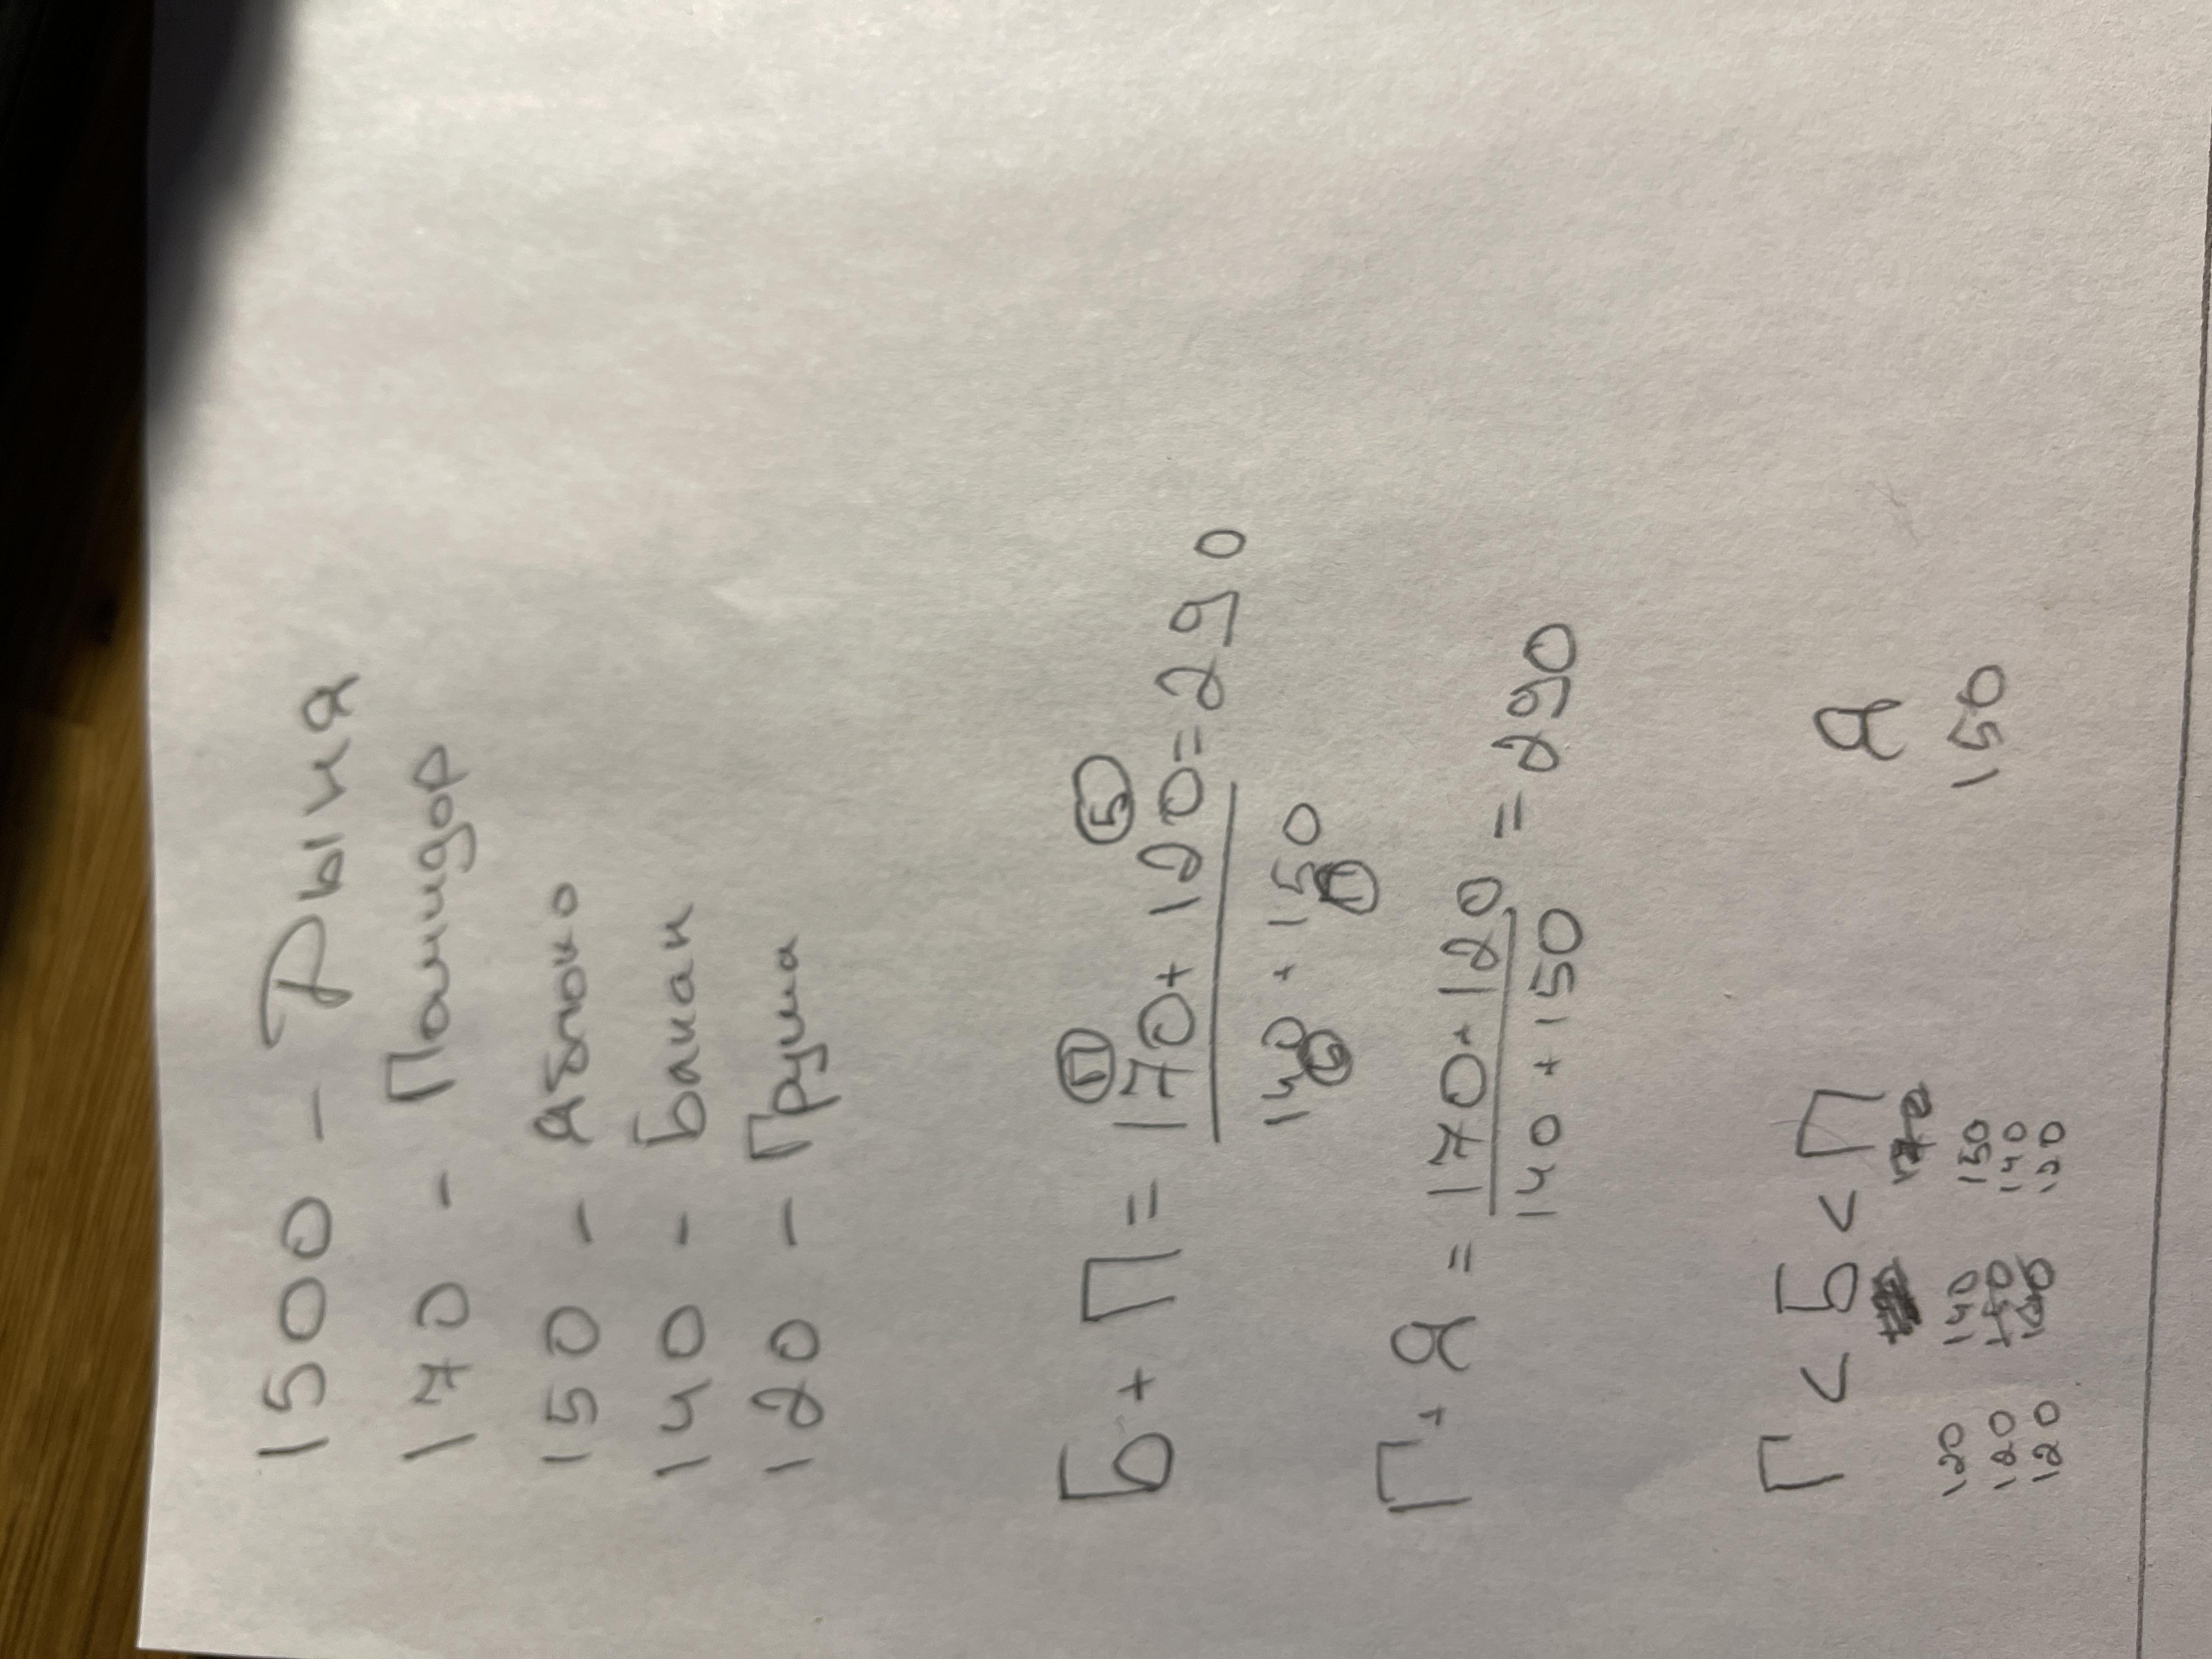 1500 - Дыня
170 - Помидор
150 - Яблоко
140 - Банан
120 - Груша
П Б
Б + П = 170 + 120 = 290
140 + 150
Б П
Г + Я = 170 + 120 = 290
140 + 150
Г < Б < П Я
120 140 150 150
120 150 140
120 140 120